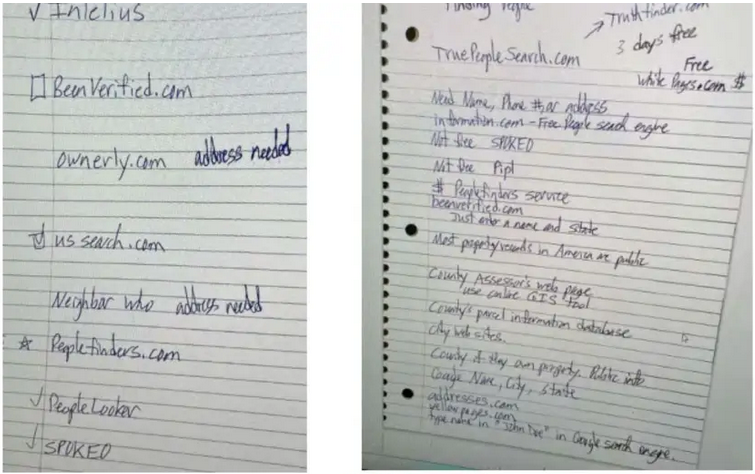 ✓ Intelius
BeenVerified.com
ownerly.com address needed
us search.com
Neighbor who address needed
Peoplefinders.com
✓ PeopleLooker
✓ SPOKEO
Finding People
Truthfinder.com
3 days free
TruePeopleSearch.com
Free
White Pages.com $
Need Name, Phone #, or address
information.com - Free People search engine
Not free SPOKEO
Not free Pipl
$ Peoplefinders service
beenverified.com
Just enter a name and State
Most property records in America are public
County Assessor's web page
use online GIS tool
County's parcel information database
city web sites.
County if they own property. Public info
Google Name, City, State
addresses.com
yellowpages.com
type name in "John Doe" in Google search engine.